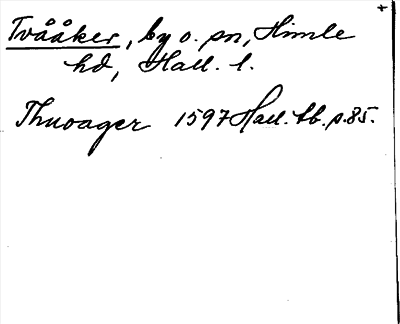 Tvååker, by o. sn, Himle
hd, Hall. l.
Thuoager 1597 Hall. tb. p. 85.